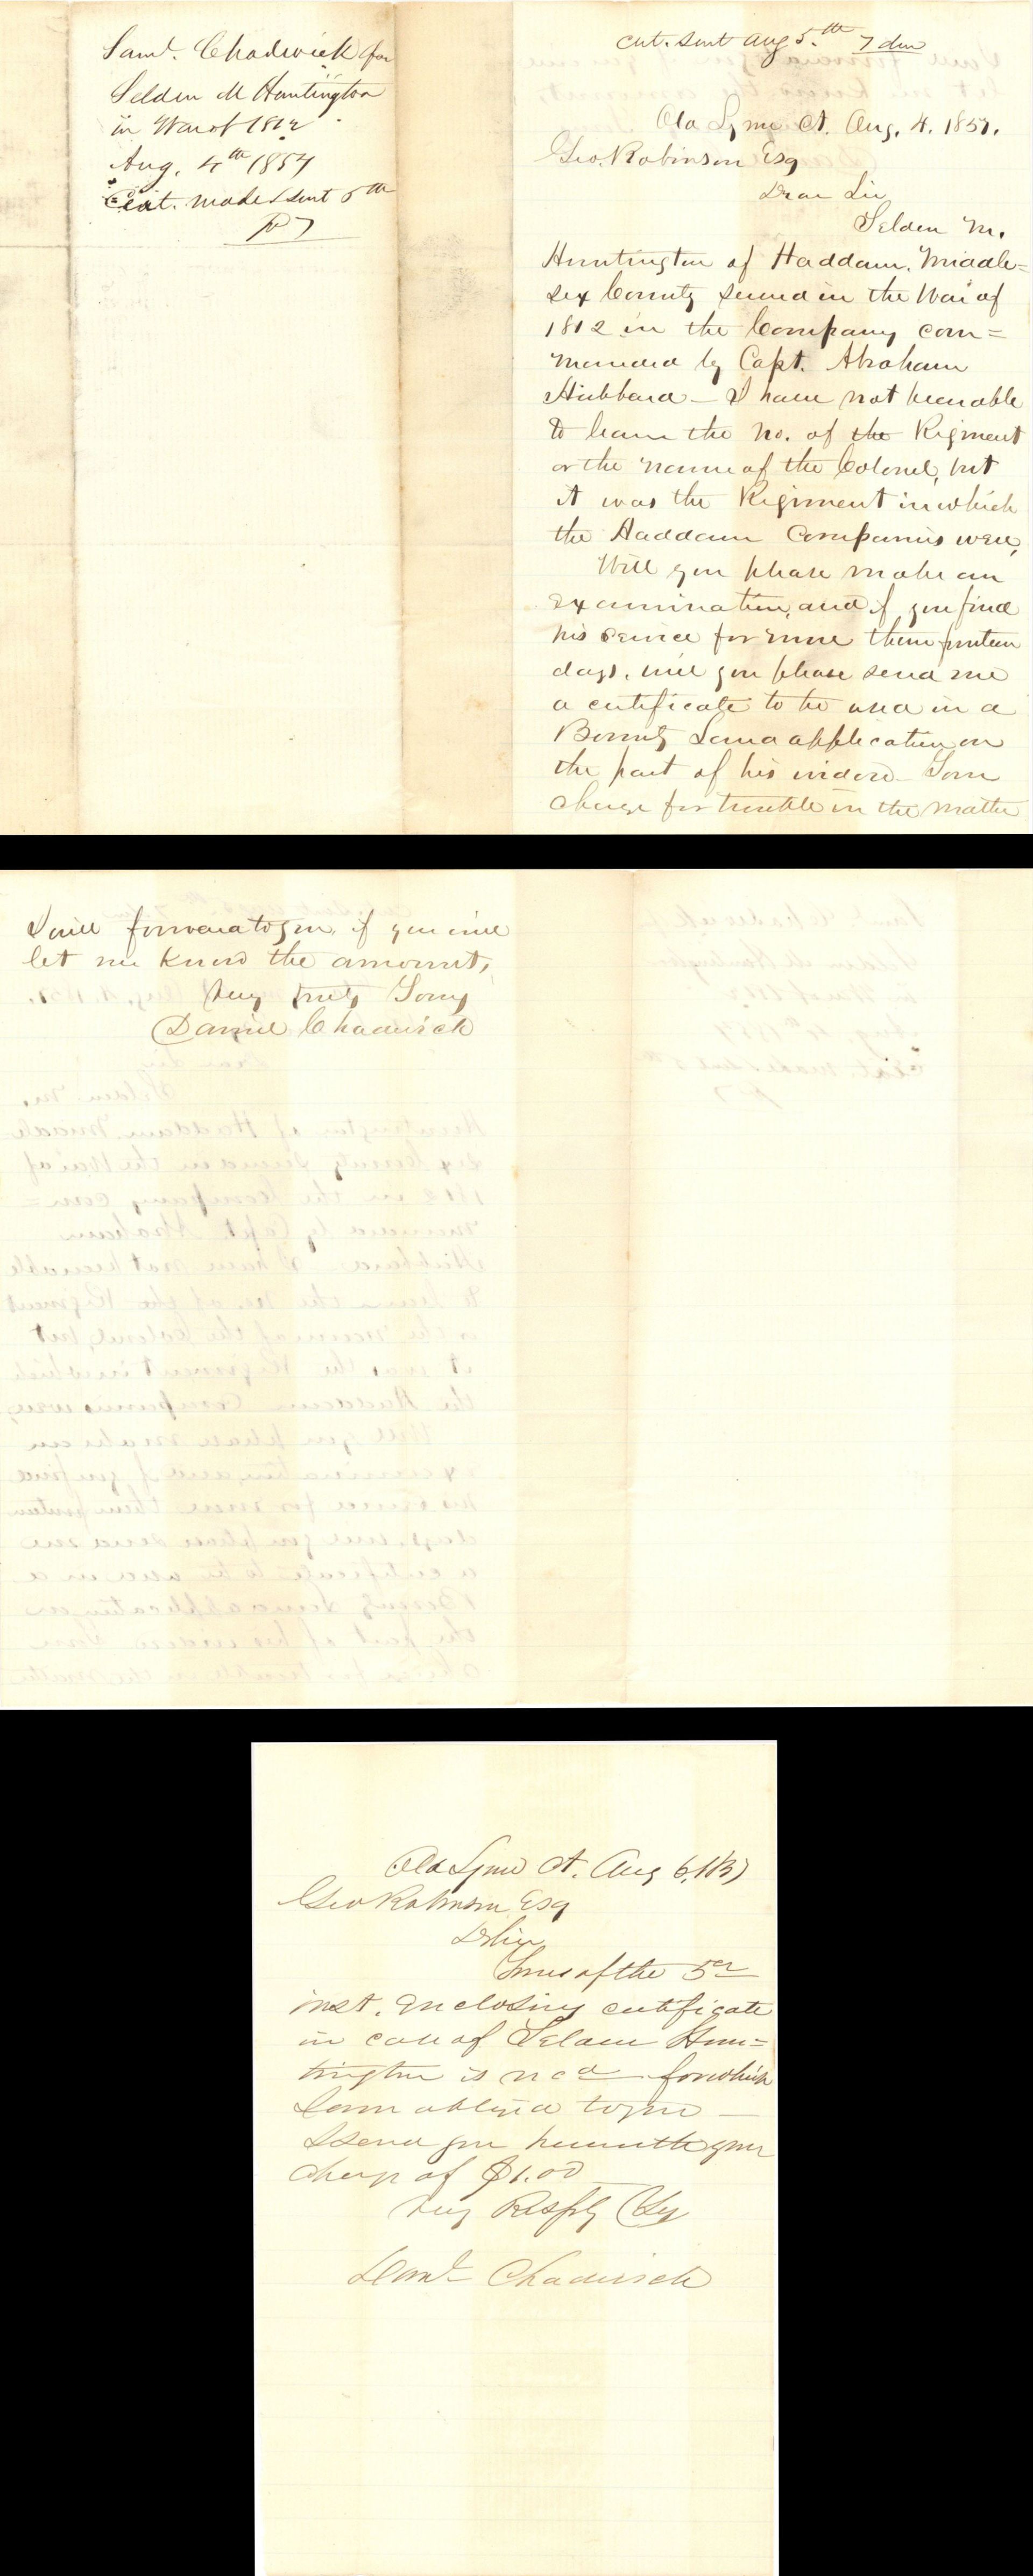 Saml. Chadwick for
Selden M Huntington
in War of 1812
Aug. 4th 1857
Cert. made & sent 5th
cert. sent Aug 5.th
Old Lyme Ct. Aug. 4. 1857.
Geo. Robinson Esq
Dear Sir
Selden M.
Huntington of Haddam, Middle=
sex County served in the War of
1812 in the Company com=
manded by Capt. Abraham
Hubbard – I have not been able
to learn the No. of the Regiment
or the name of the Colonel, but
it was the Regiment in which
the Haddam Companies were,
Will you please make an
examination, and if you find
his service for more then fourteen
days, will you please send me
a certificate to be used in a
Bounty Land application on
the part of his widow – Your
charge for trouble in the matter
I will forward to you, if you will
let me know the amount,
Very truly Yours
Daniel Chadwick
Old Lyme Ct. Aug 6, 1857
Geo Robinson Esq
D Sir
Yours of the 5th
inst. Enclosing certificate
in case of Selden Hun=
tington is recd for which
I am obliged to you –
I send you herewith your
charge of $1.00
Very Respfly Yrs
Danl Chadwick